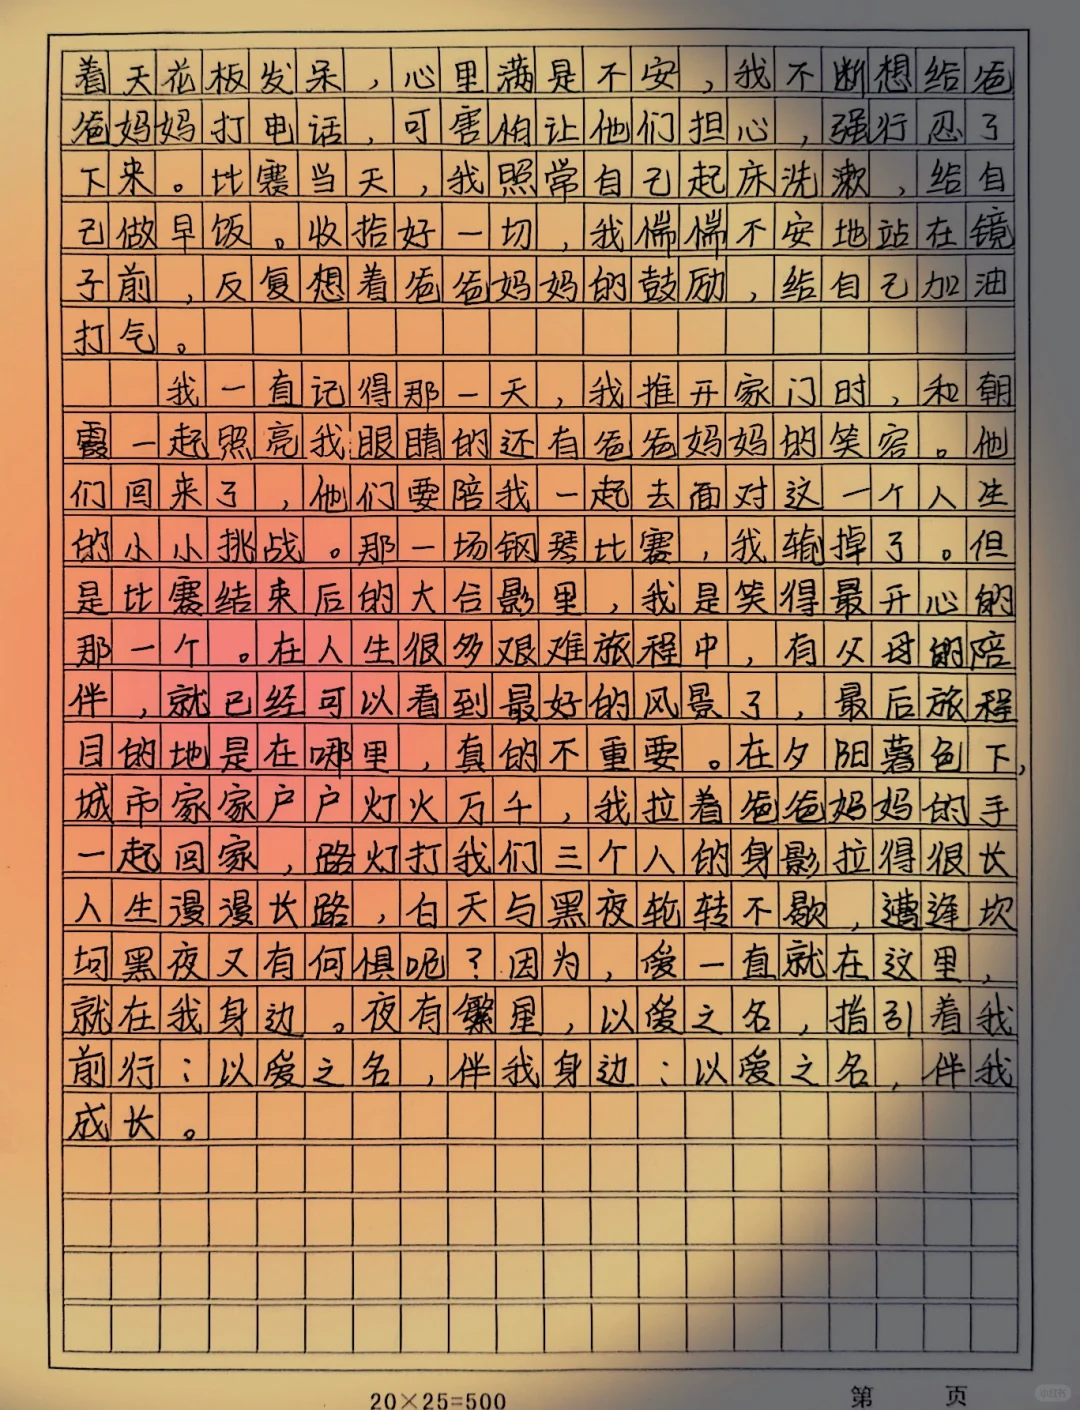 着天花板发呆，心里满是不安，我不断想给爸
爸妈妈打电话，可害怕让他们担心，强行忍了
下来。比赛当天，我照常自己起床洗漱，给自
己做早饭。收拾好一切，我惴惴不安地站在镜
子前，反复想着爸爸妈妈的鼓励，给自己加油
打气。
我一直记得那一天，我推开家门时，和朝
霞一起照亮我眼睛的还有爸爸妈妈的笑容。他
们回来了，他们要陪我一起去面对这一个人生
的小小挑战。那一场钢琴比赛，我输掉了。但
是比赛结束后的大合影里，我是笑得最开心的
那一个。在人生很多艰难旅程中，有父母的陪
伴，就已经可以看到最好的风景了，最后旅程
目的地是在哪里，真的不重要。在夕阳暮色下，
城市家家户户灯火万千，我拉着爸爸妈妈的手
一起回家，路灯打我们三个人的身影拉得很长
人生漫漫长路，白天与黑夜轮转不歇，遭逢坎
坷黑夜又有何惧呢？因为，爱一直就在这里，
就在我身边。夜有繁星，以爱之名，指引着我
前行；以爱之名，伴我身边；以爱之名，伴我
成长。
20×25=500
第 页
小红书